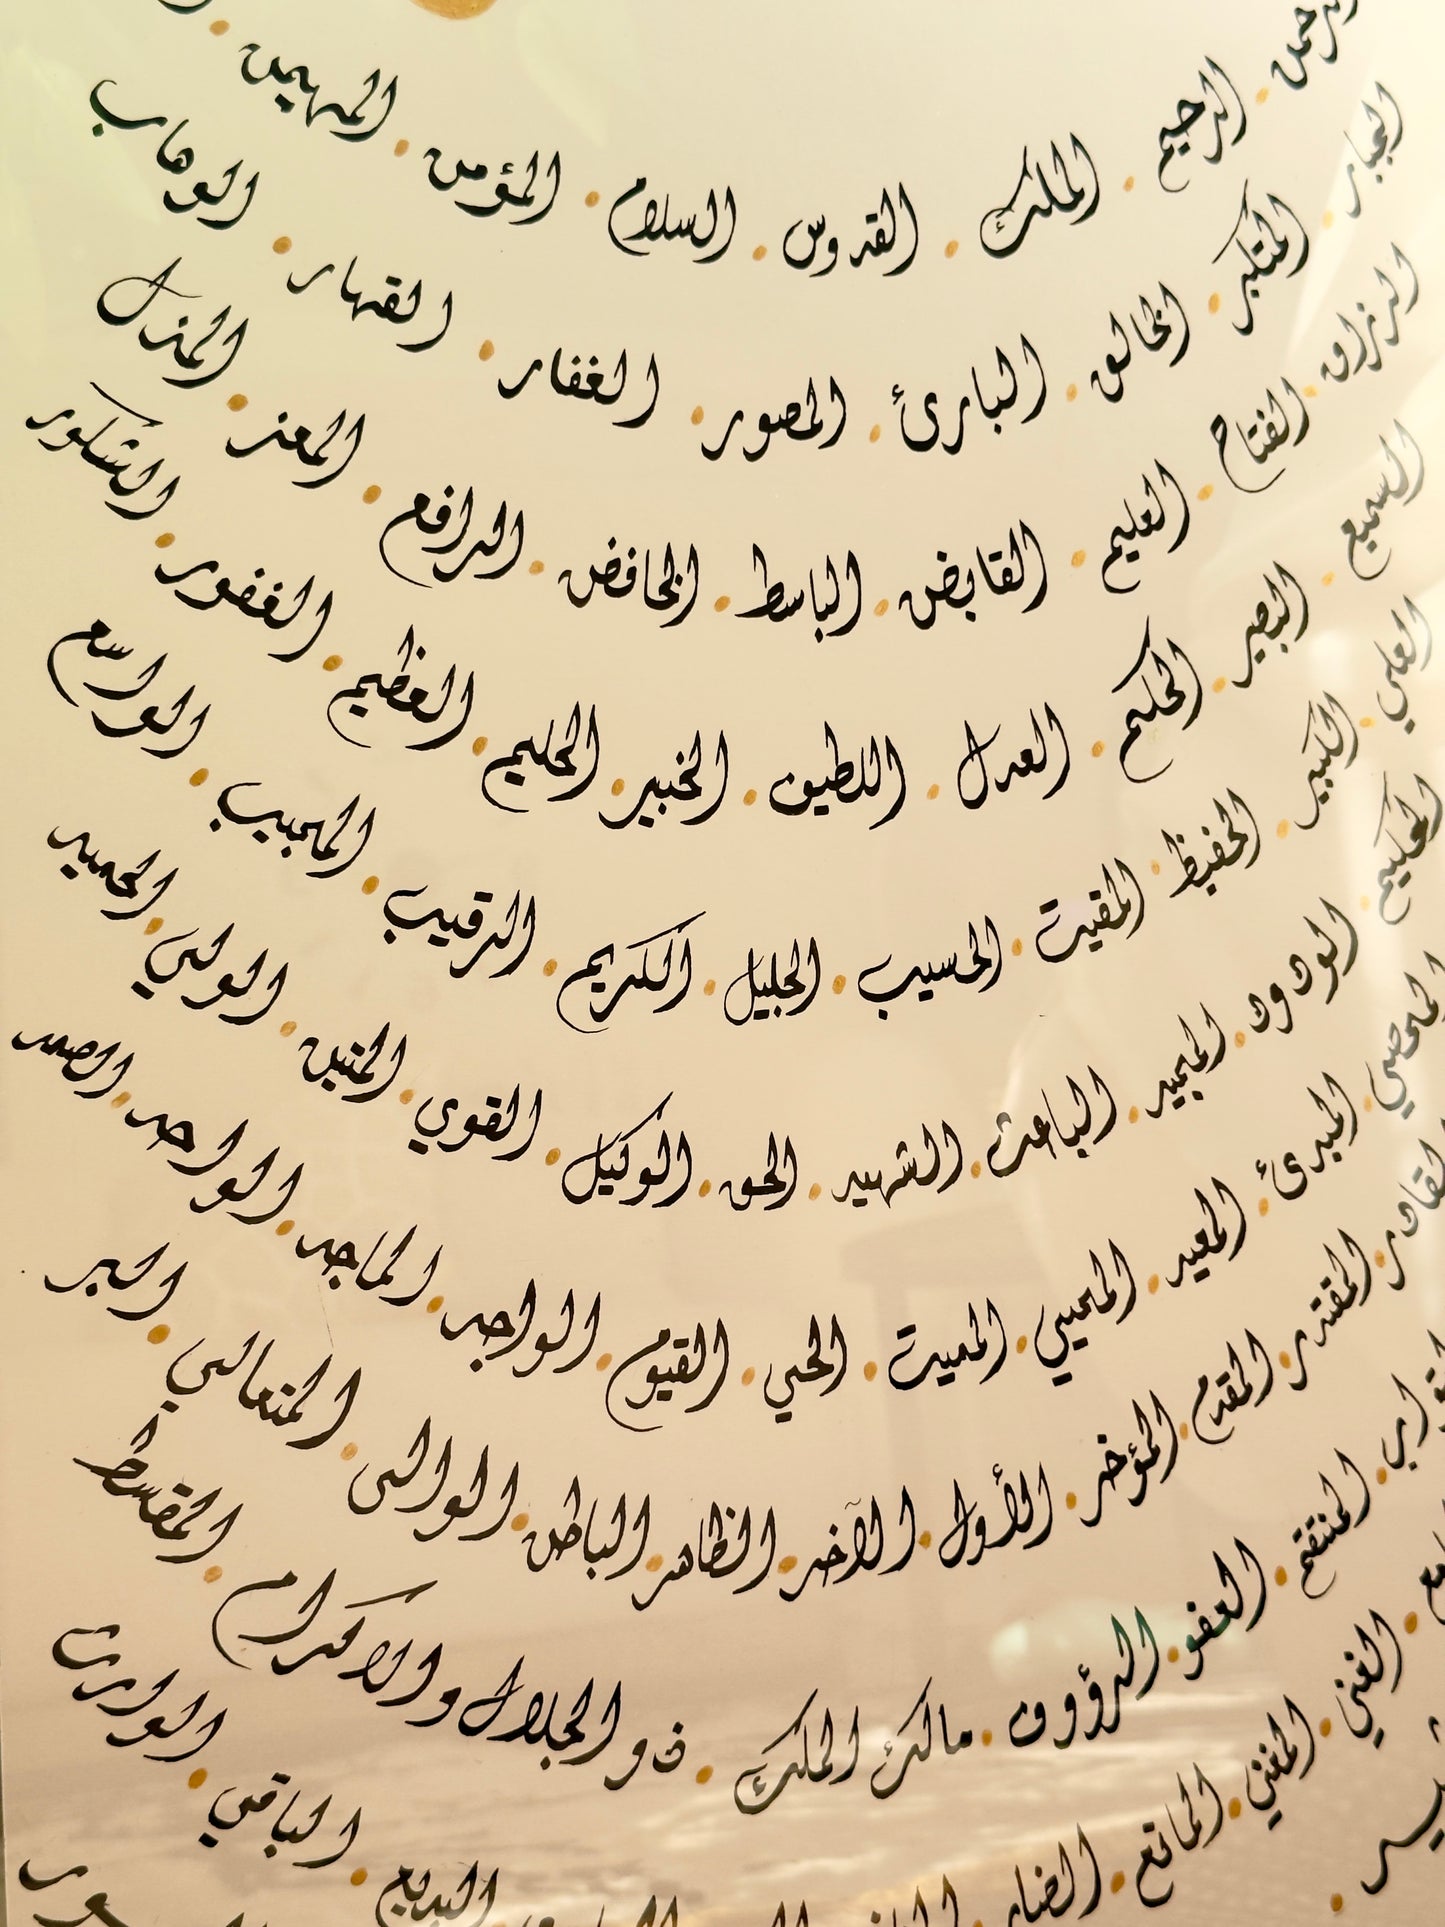 الرحمن . الرحيم . الملك . القدوس . السلام . المؤمن . المهيمن .
الجبار . المتكبر . الخالق . البارئ . المصور . الغفار . القهار . الوهاب
الرزاق . الفتاح . العليم . القابض . الباسط . الخافض . الرافع . المعز . المذل
السميع . البصير . الحكيم . العدل . اللطيف . الخبير . الحليم . العظيم . الغفور . الشكور
العلي . الكبير . الحفيظ . المقيت . الحسيب . الجليل . الكريم . الرقيب . المجيب . الواسع
الحكيم . الودود . المجيد . الباعث . الشهيد . الحق . الوكيل . القوي . المتين . الولي . الحميد
المحصي . المبدئ . المعيد . المحيي . المميت . الحي . القيوم . الواجد . الماجد . الواحد . الصمد
القادر . المقتدر . المقدم . المؤخر . الأول . الآخر . الظاهر . الباطن . الوالى . المتعالي . البر
التواب . المنتقم . العفو . الرؤوف . مالك الملك . ذو الجلال والاكرام . المقسط
الغني . المغني . المانع . الضار . البديع . الباقي . الوارث